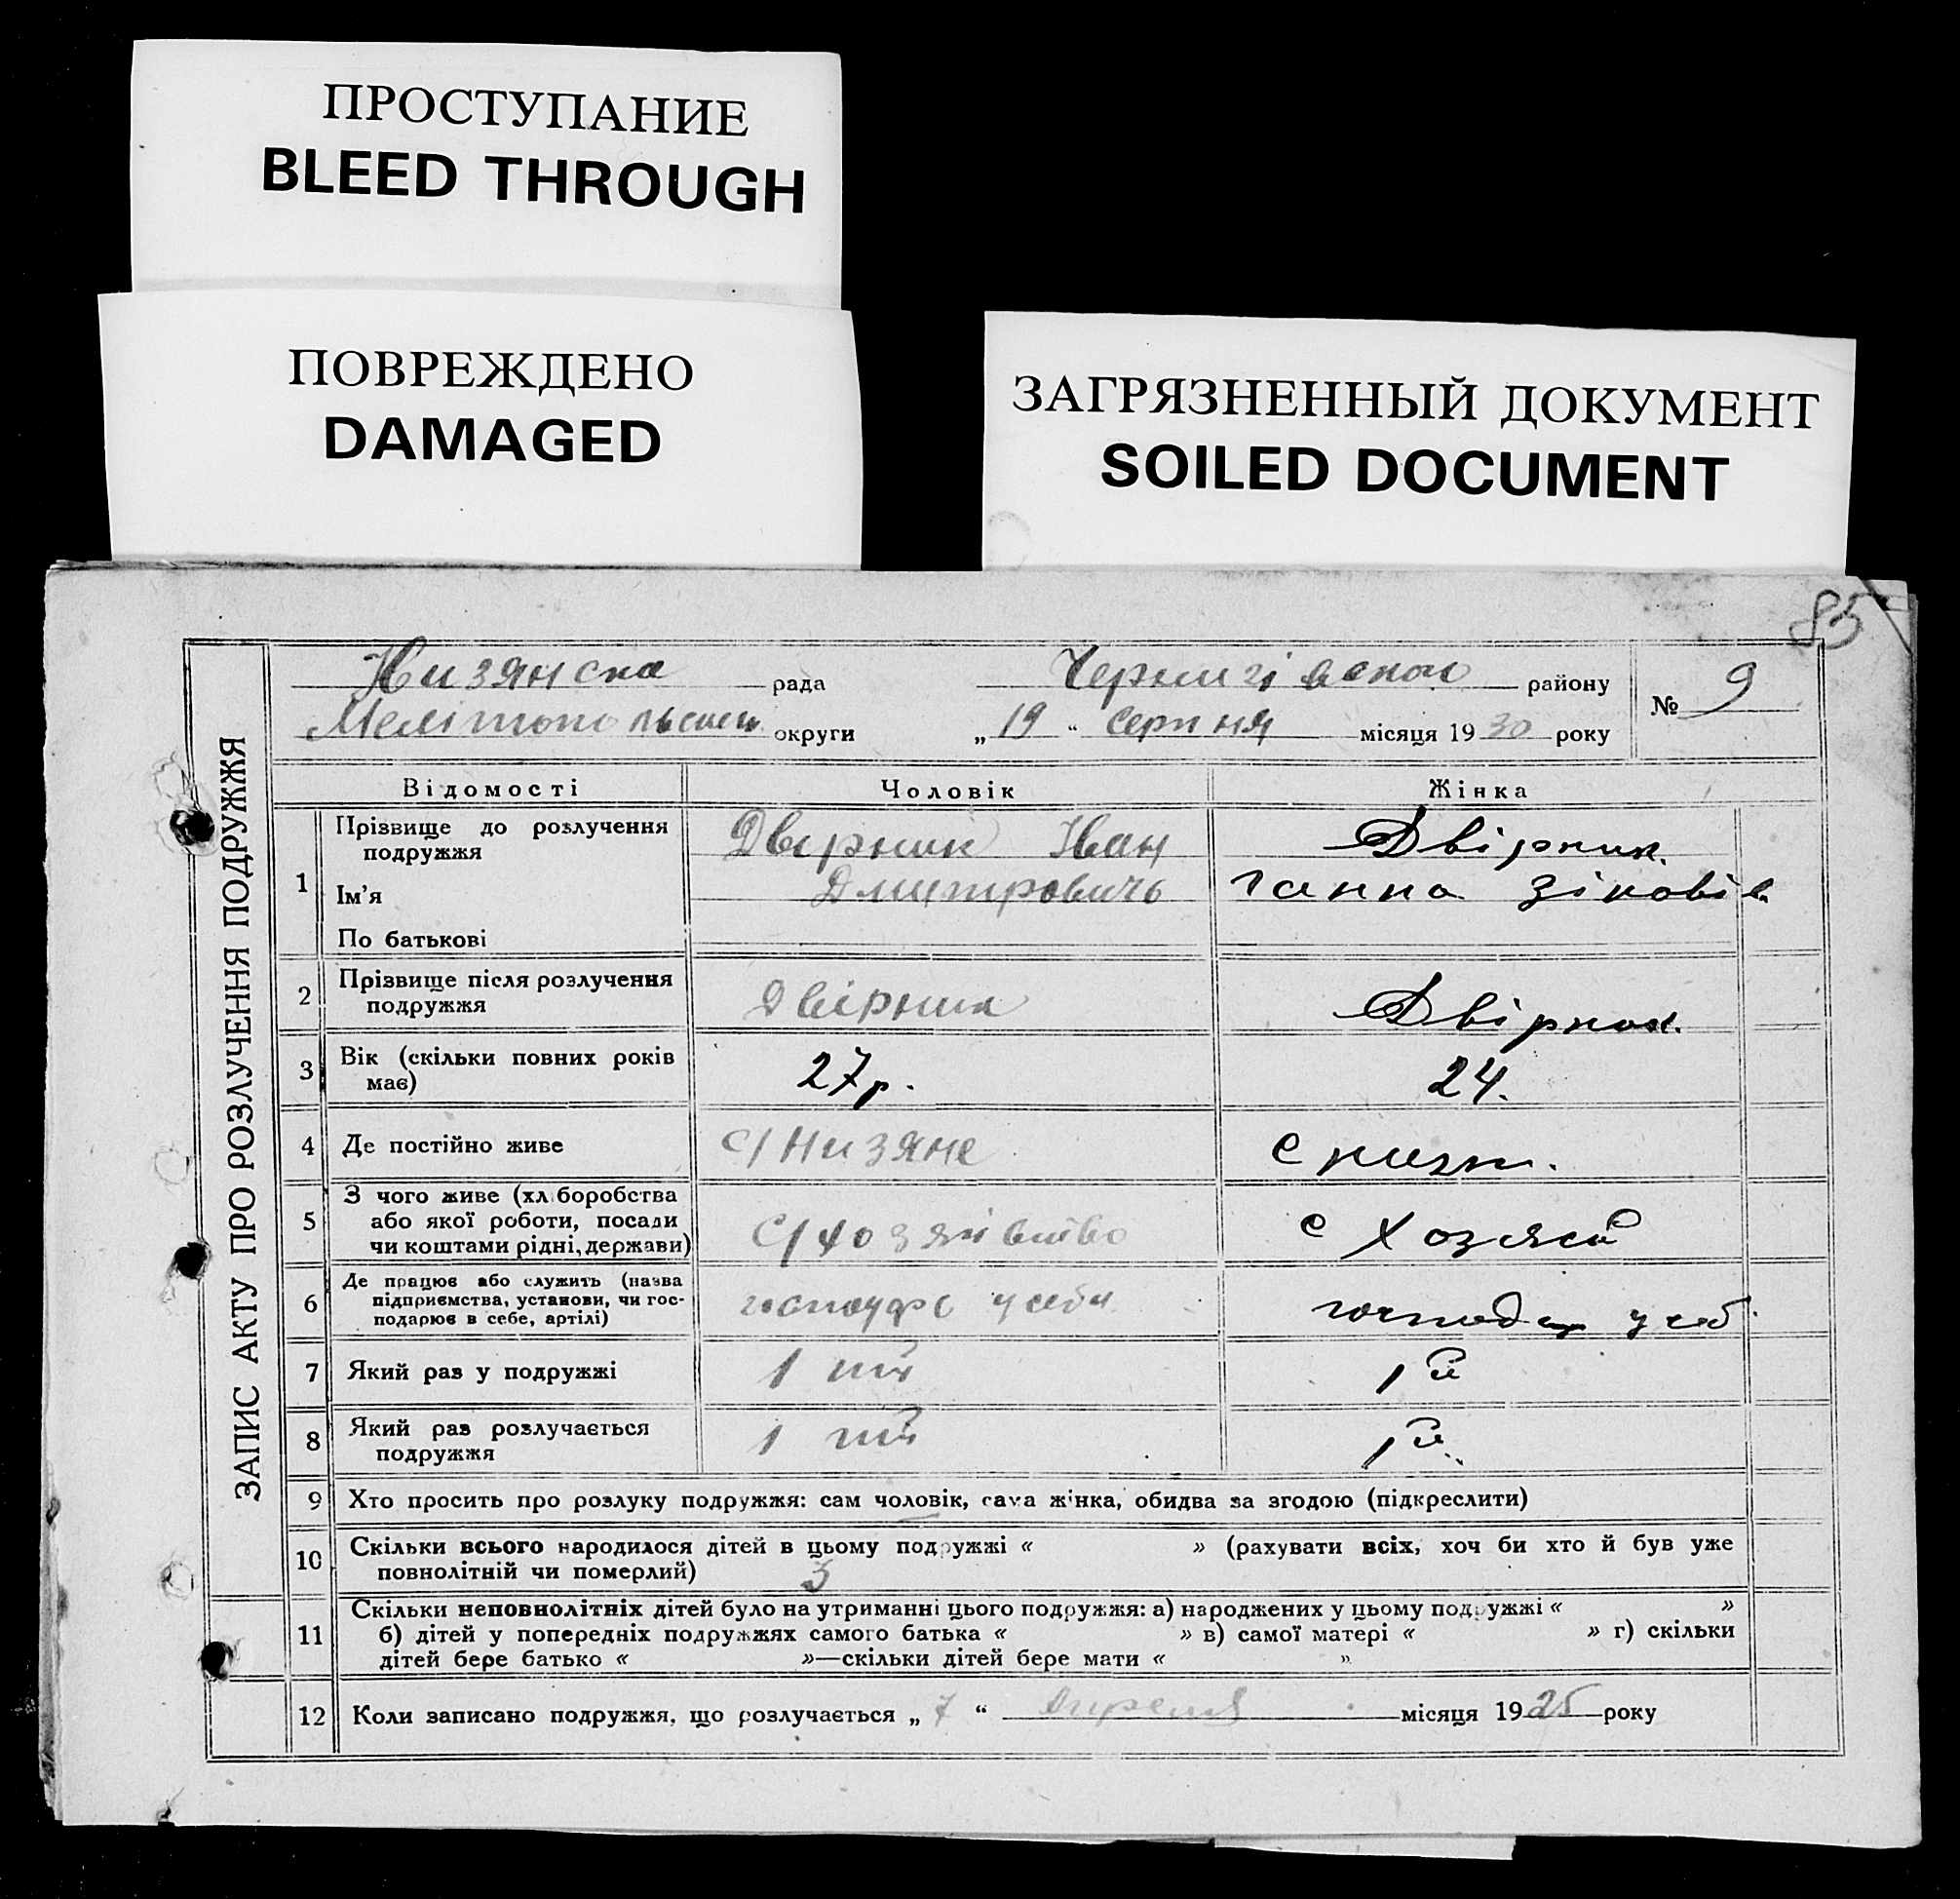 ПРОСТУПАНИЕ
BLEED THROUGH
ПОВРЕЖДЕНО
DAMAGED
ЗАГРЯЗНЕННЫЙ ДОКУМЕНТ
SOILED DOCUMENT
85
ЗАПИС АКТУ ПРО РОЗЛУЧЕННЯ ПОДРУЖЖЯ
Низянска рада Чернигівского району № 9
Мелітопольскої округи „ 19 “ серпня місяця 19 30 року
Відомості Чоловік Жінка
1 Прізвище до розлучення подружжя Двірник Іван Двірник.
Ім'я Дмитровичь Ганна
По батькові
2 Прізвище після розлучення подружжя Двірник Двірник.
3 Вік (скільки повних років має) 27 р. 24.
4 Де постійно живе С/Низяне с низян.
5 З чого живе (хліборобства
або якої роботи, посади
чи коштами рідні, держави) С/хозяйвство с хозяй
6 Де працює або служить (назва
підприємства, установи, чи гос-
подарює в себе, артілі) у себя у себ
7 Який раз у подружжі 1 ий 1й
8 Який раз розлучається подружжя 1 ий 1й.
9 Хто просить про розлуку подружжя: сам чоловік, сама жінка, обидва за згодою (підкреслити)
10 Скільки всього народилося дітей в цьому подружжі « » (рахувати всіх, хоч би хто й був уже
повнолітній чи померлий) 3
11 Скільки неповнолітніх дітей було на утриманні цього подружжя: а) народжених у цьому подружжі « »
б) дітей у попередніх подружжях самого батька « » в) самої матері « » г) скільки
дітей бере батько « »—скільки дітей бере мати « »
12 Коли записано подружжя, що розлучається „ 7 “ Апреля місяця 19 25 року